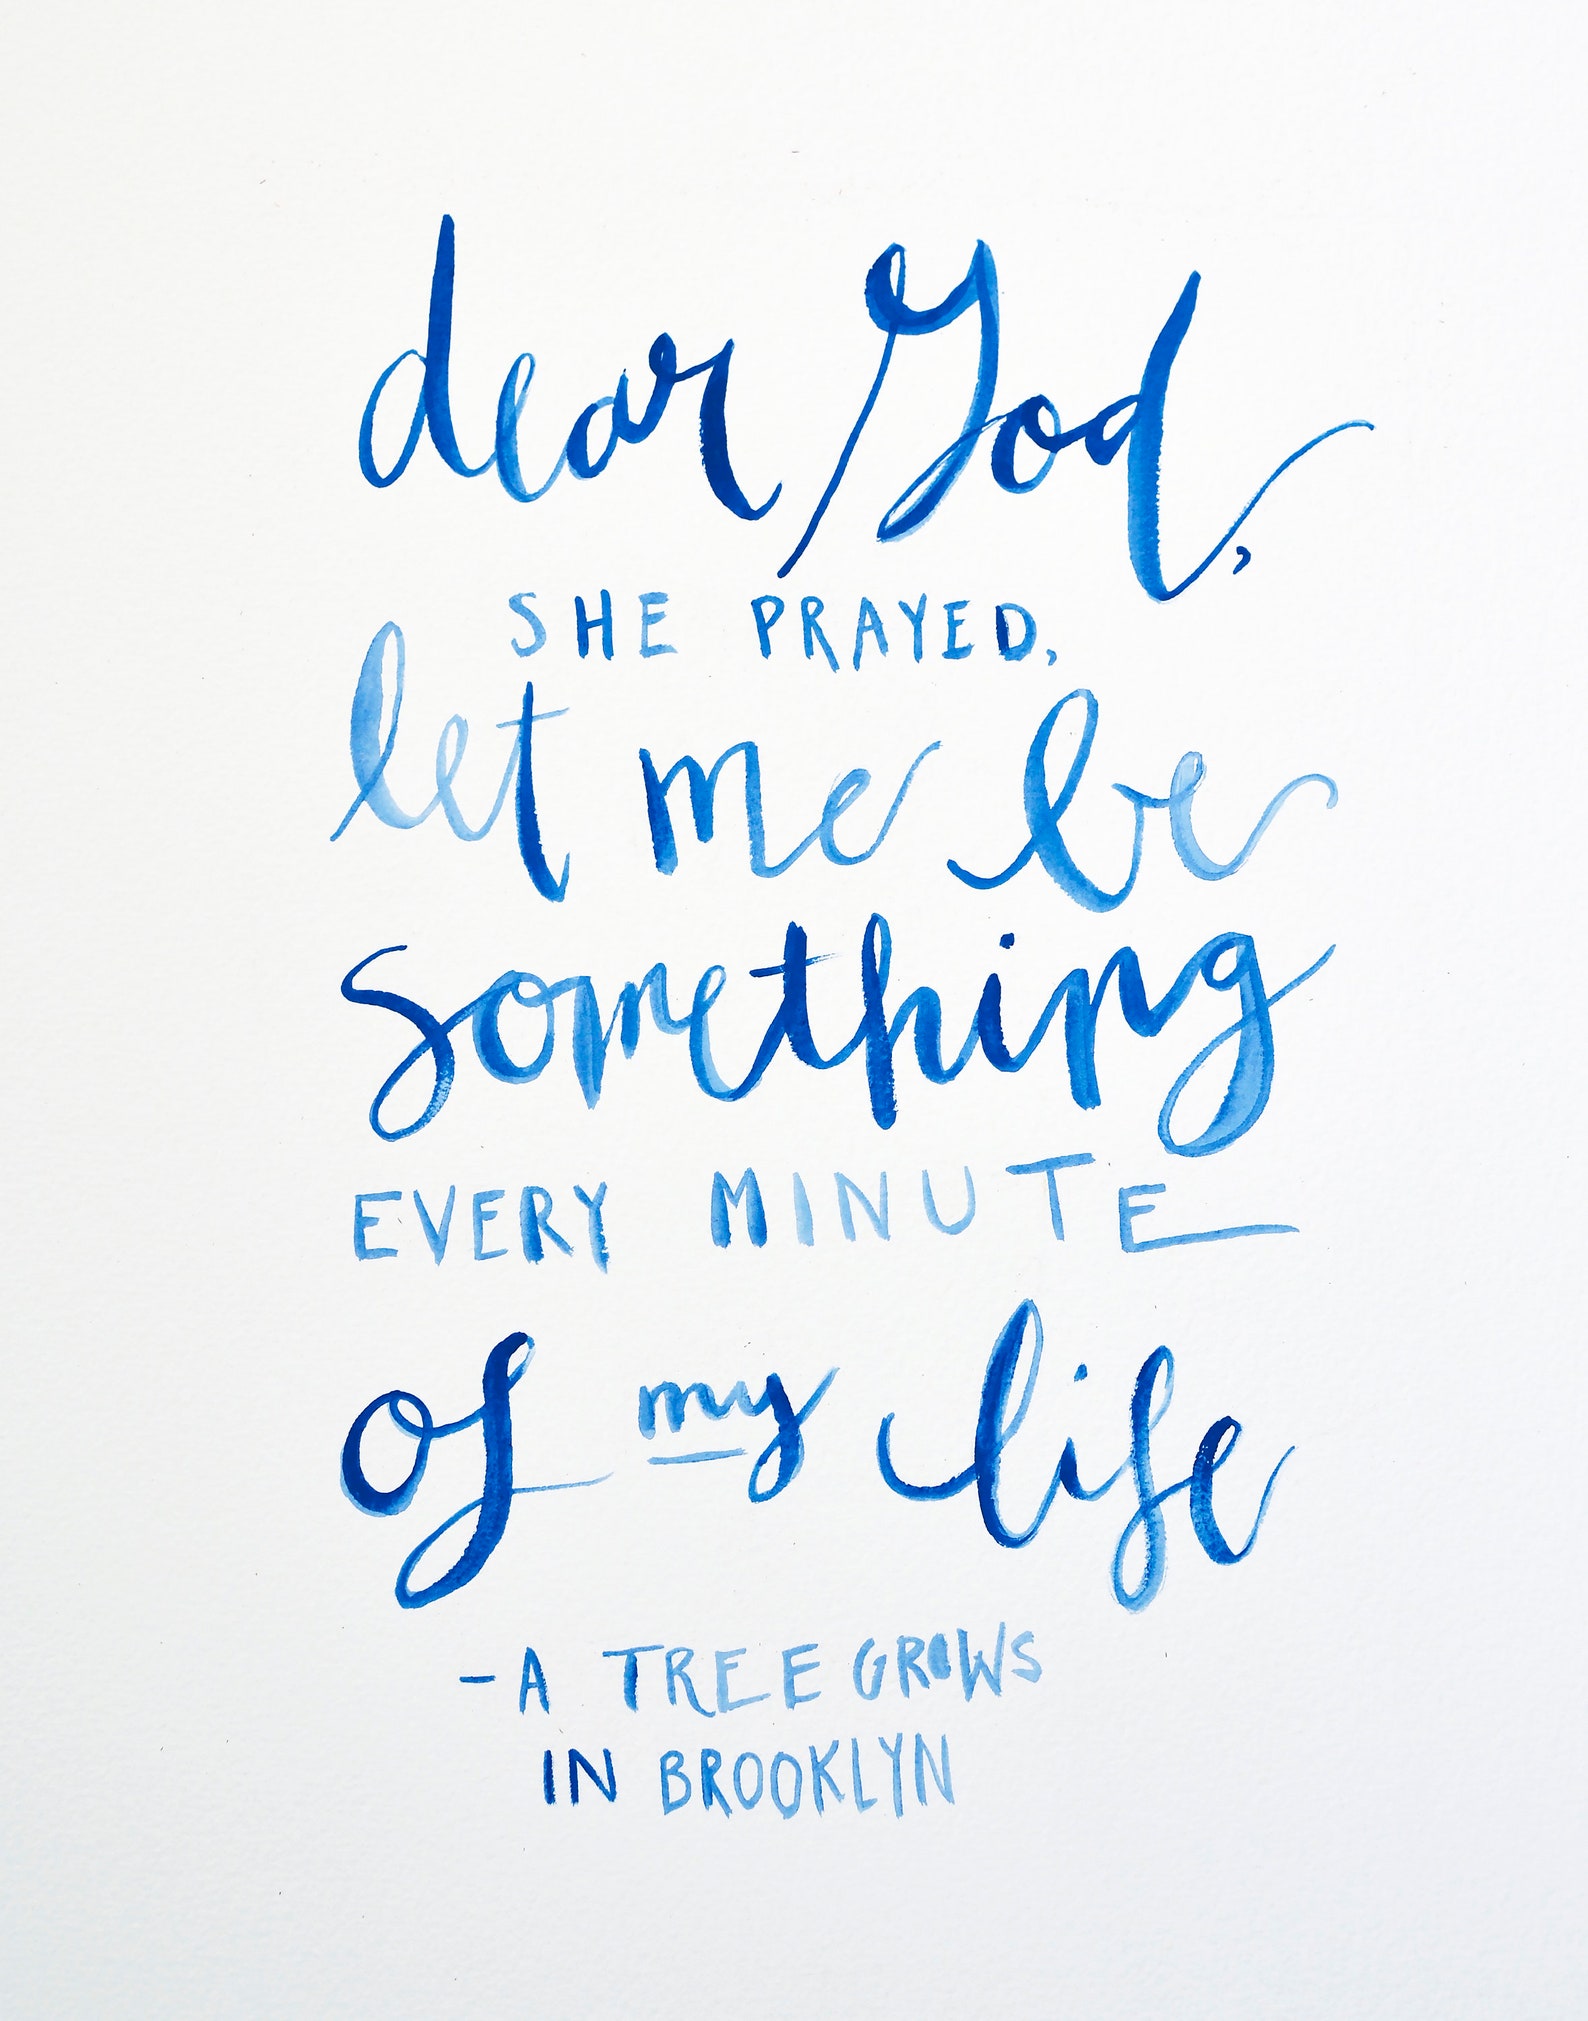 dear God,
SHE PRAYED,
let me be
something
EVERY MINUTE
of my life
-A TREE GROWS
IN BROOKLYN